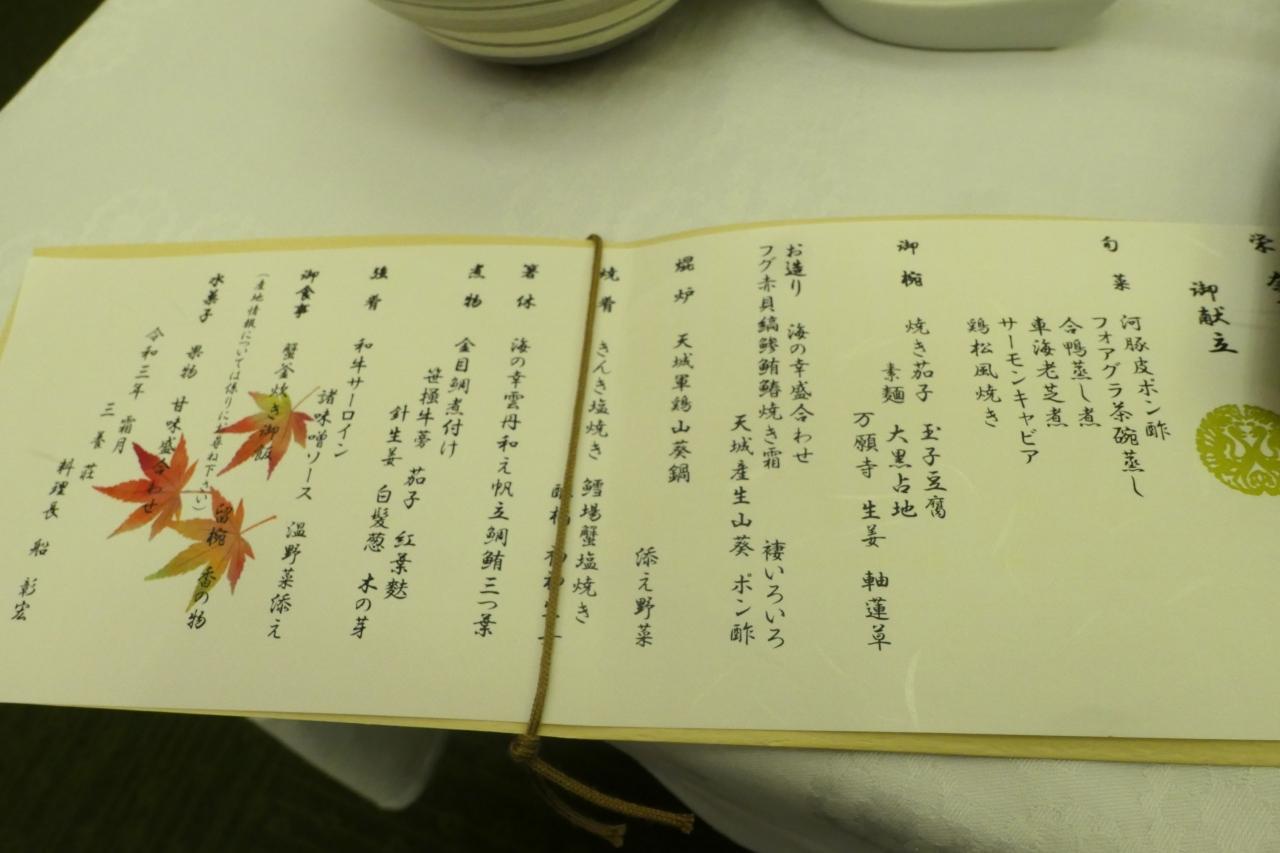 御献立
旬菜 河豚皮ポン酢
フォアグラ茶碗蒸し
合鴨蒸し煮
車海老芝煮
サーモンキャビア
鶏松風焼き
御椀 焼き茄子 玉子豆腐
素麺 大黒占地
万願寺 生姜 軸蓮草
お造り 海の幸盛合わせ 褄いろいろ
フグ赤貝縞鯵鮪鰆焼き霜
天城産生山葵 ポン酢
焜炉 天城軍鶏山葵鍋
添え野菜
焼肴 きんき塩焼き 鱈場蟹塩焼き
箸休 海の幸雲丹和え帆立鯛鮪三つ葉
煮物 金目鯛煮付け
笹極牛蒡 茄子 紅葉麩
針生姜 白髪葱 木の芽
強肴 和牛サーロイン
諸味噌ソース 温野菜添え
御食事 蟹釜炊き御飯
(産地情報については係りにお尋ね下さい)
留椀 香の物
水菓子 果物 甘味盛合わせ
令和三年 霜月
三養荘
料理長 船 彰宏